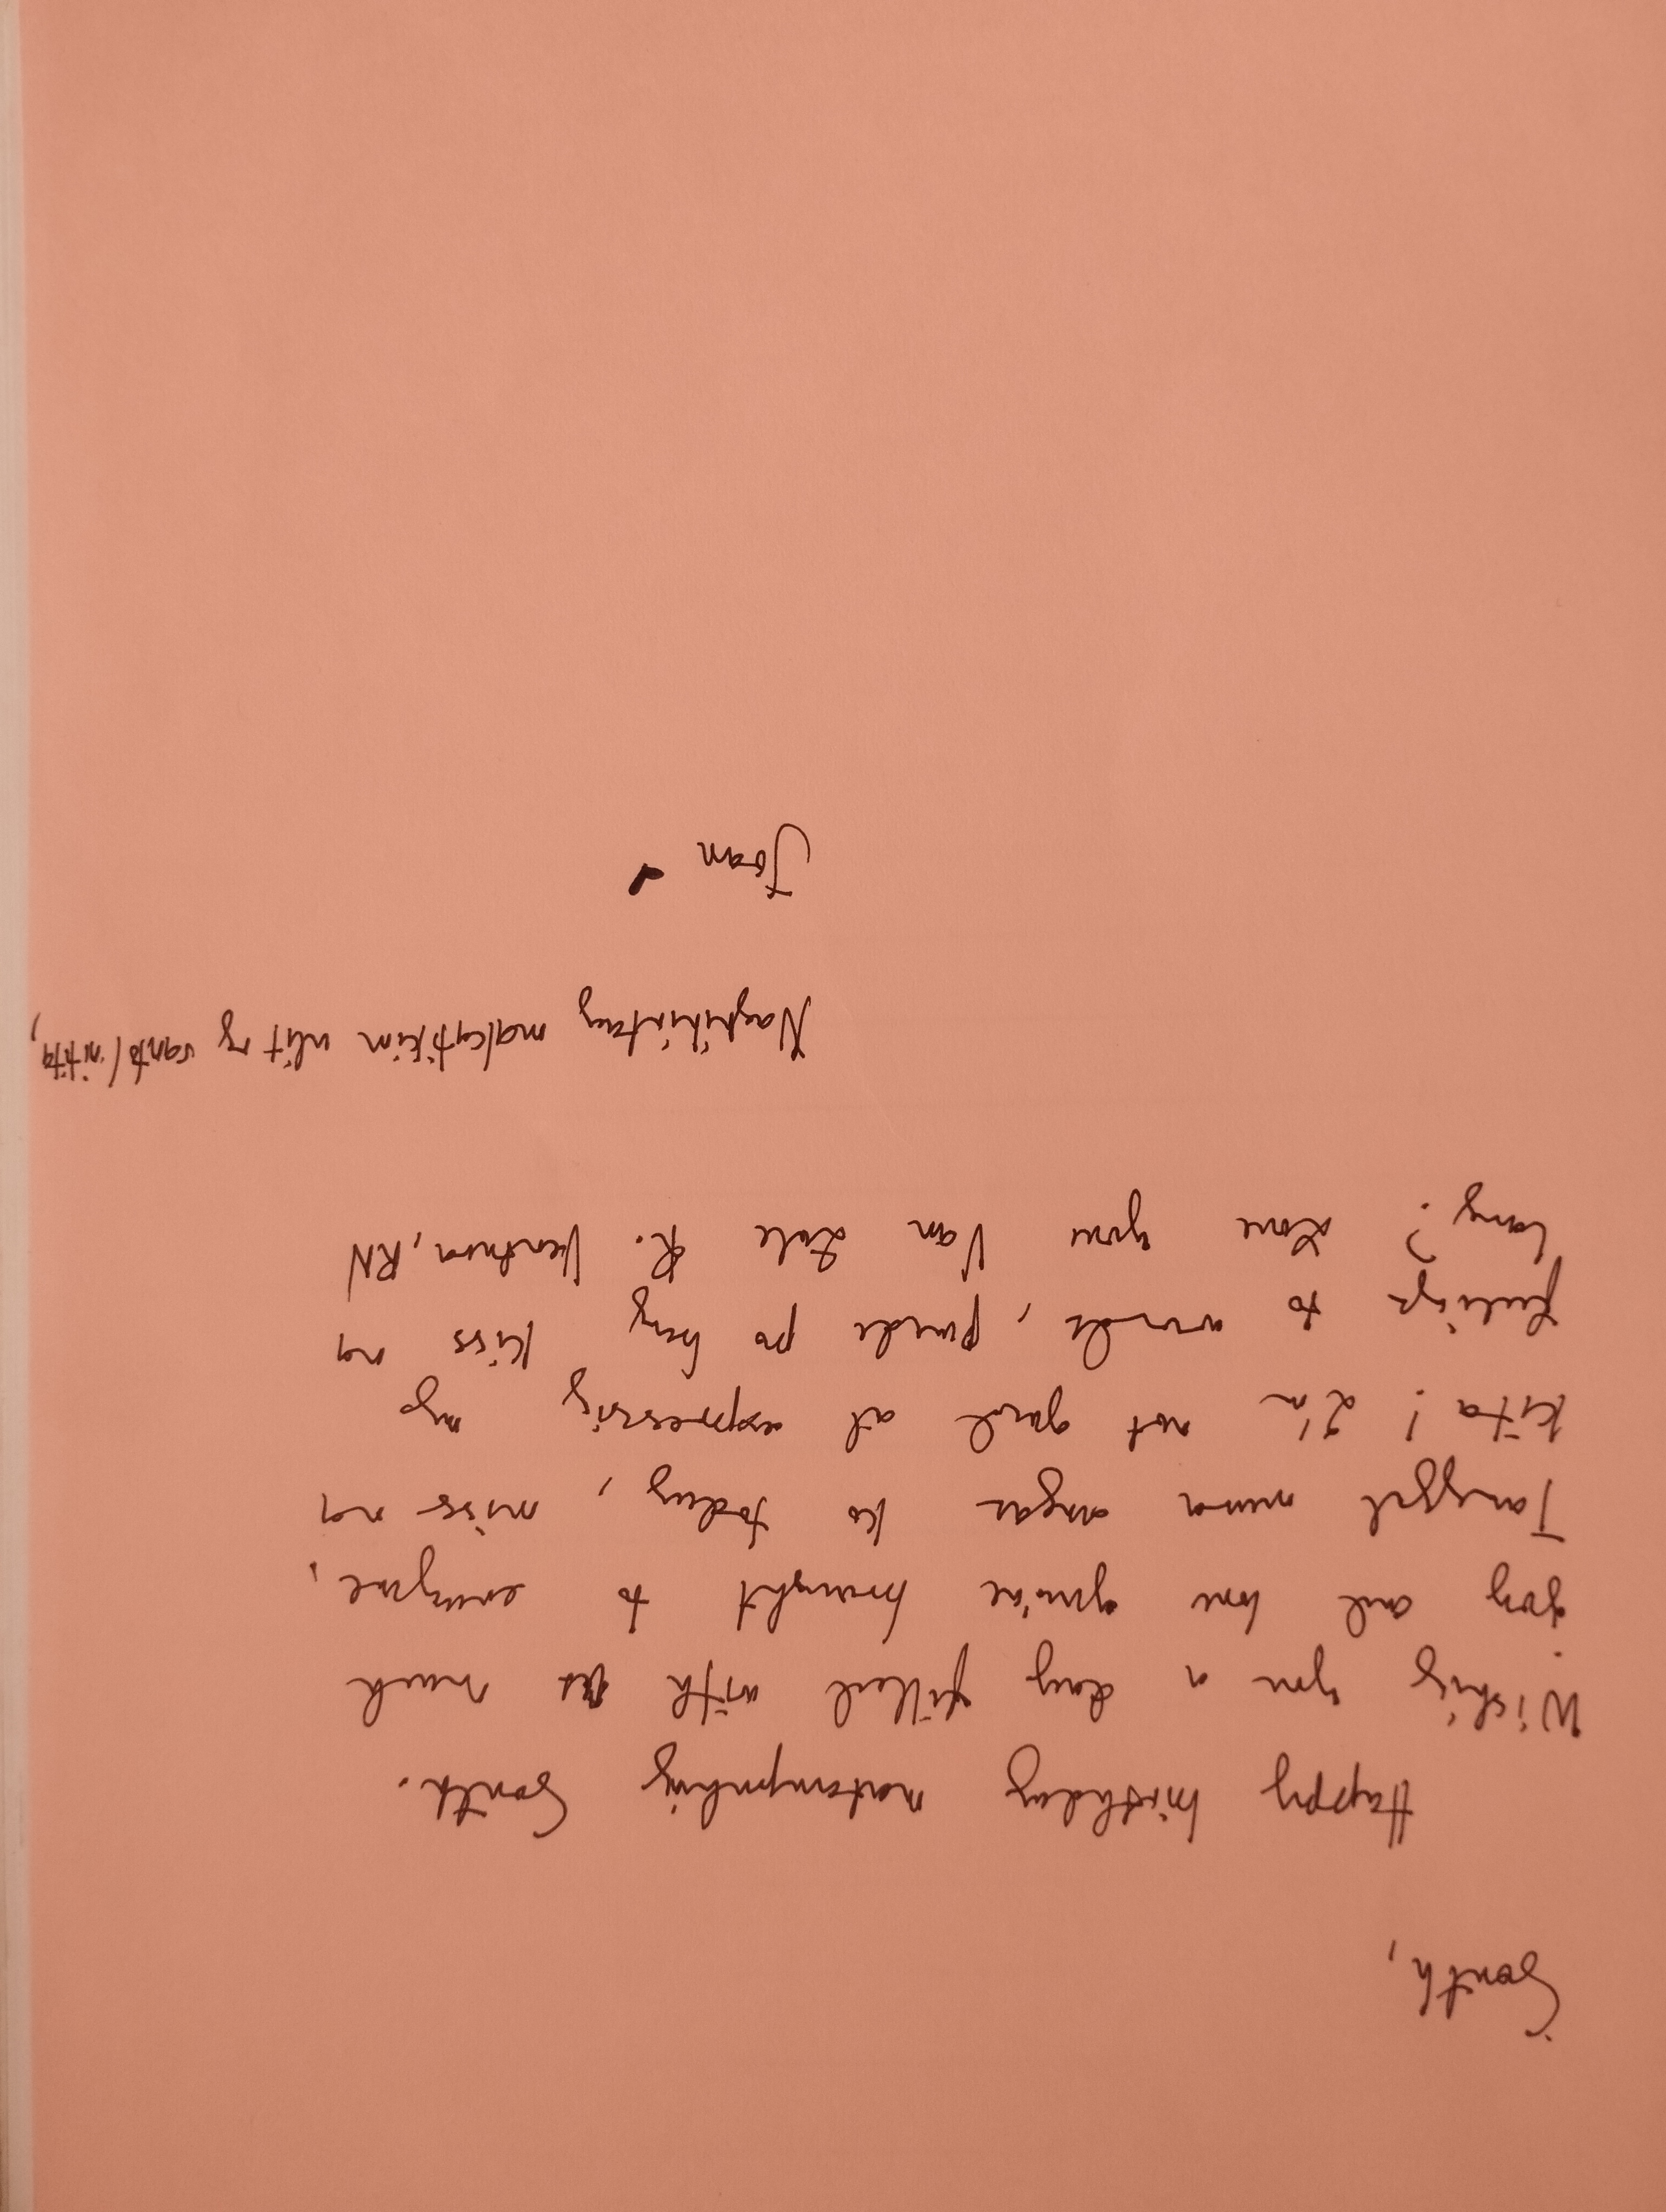 South,
Happy birthday matampuhing South.
Wishing you a day filled with as much
joy and love you've brought to everyone.
Tanggal muna angas ko today, miss na
kita! I'm not good at expressing my
feelings to words, puede po bang kiss na
lang? Love you Van Zole R. Ventura, RN
Naghihintay makatikim ulit ng santol nitita,
Joan ❤